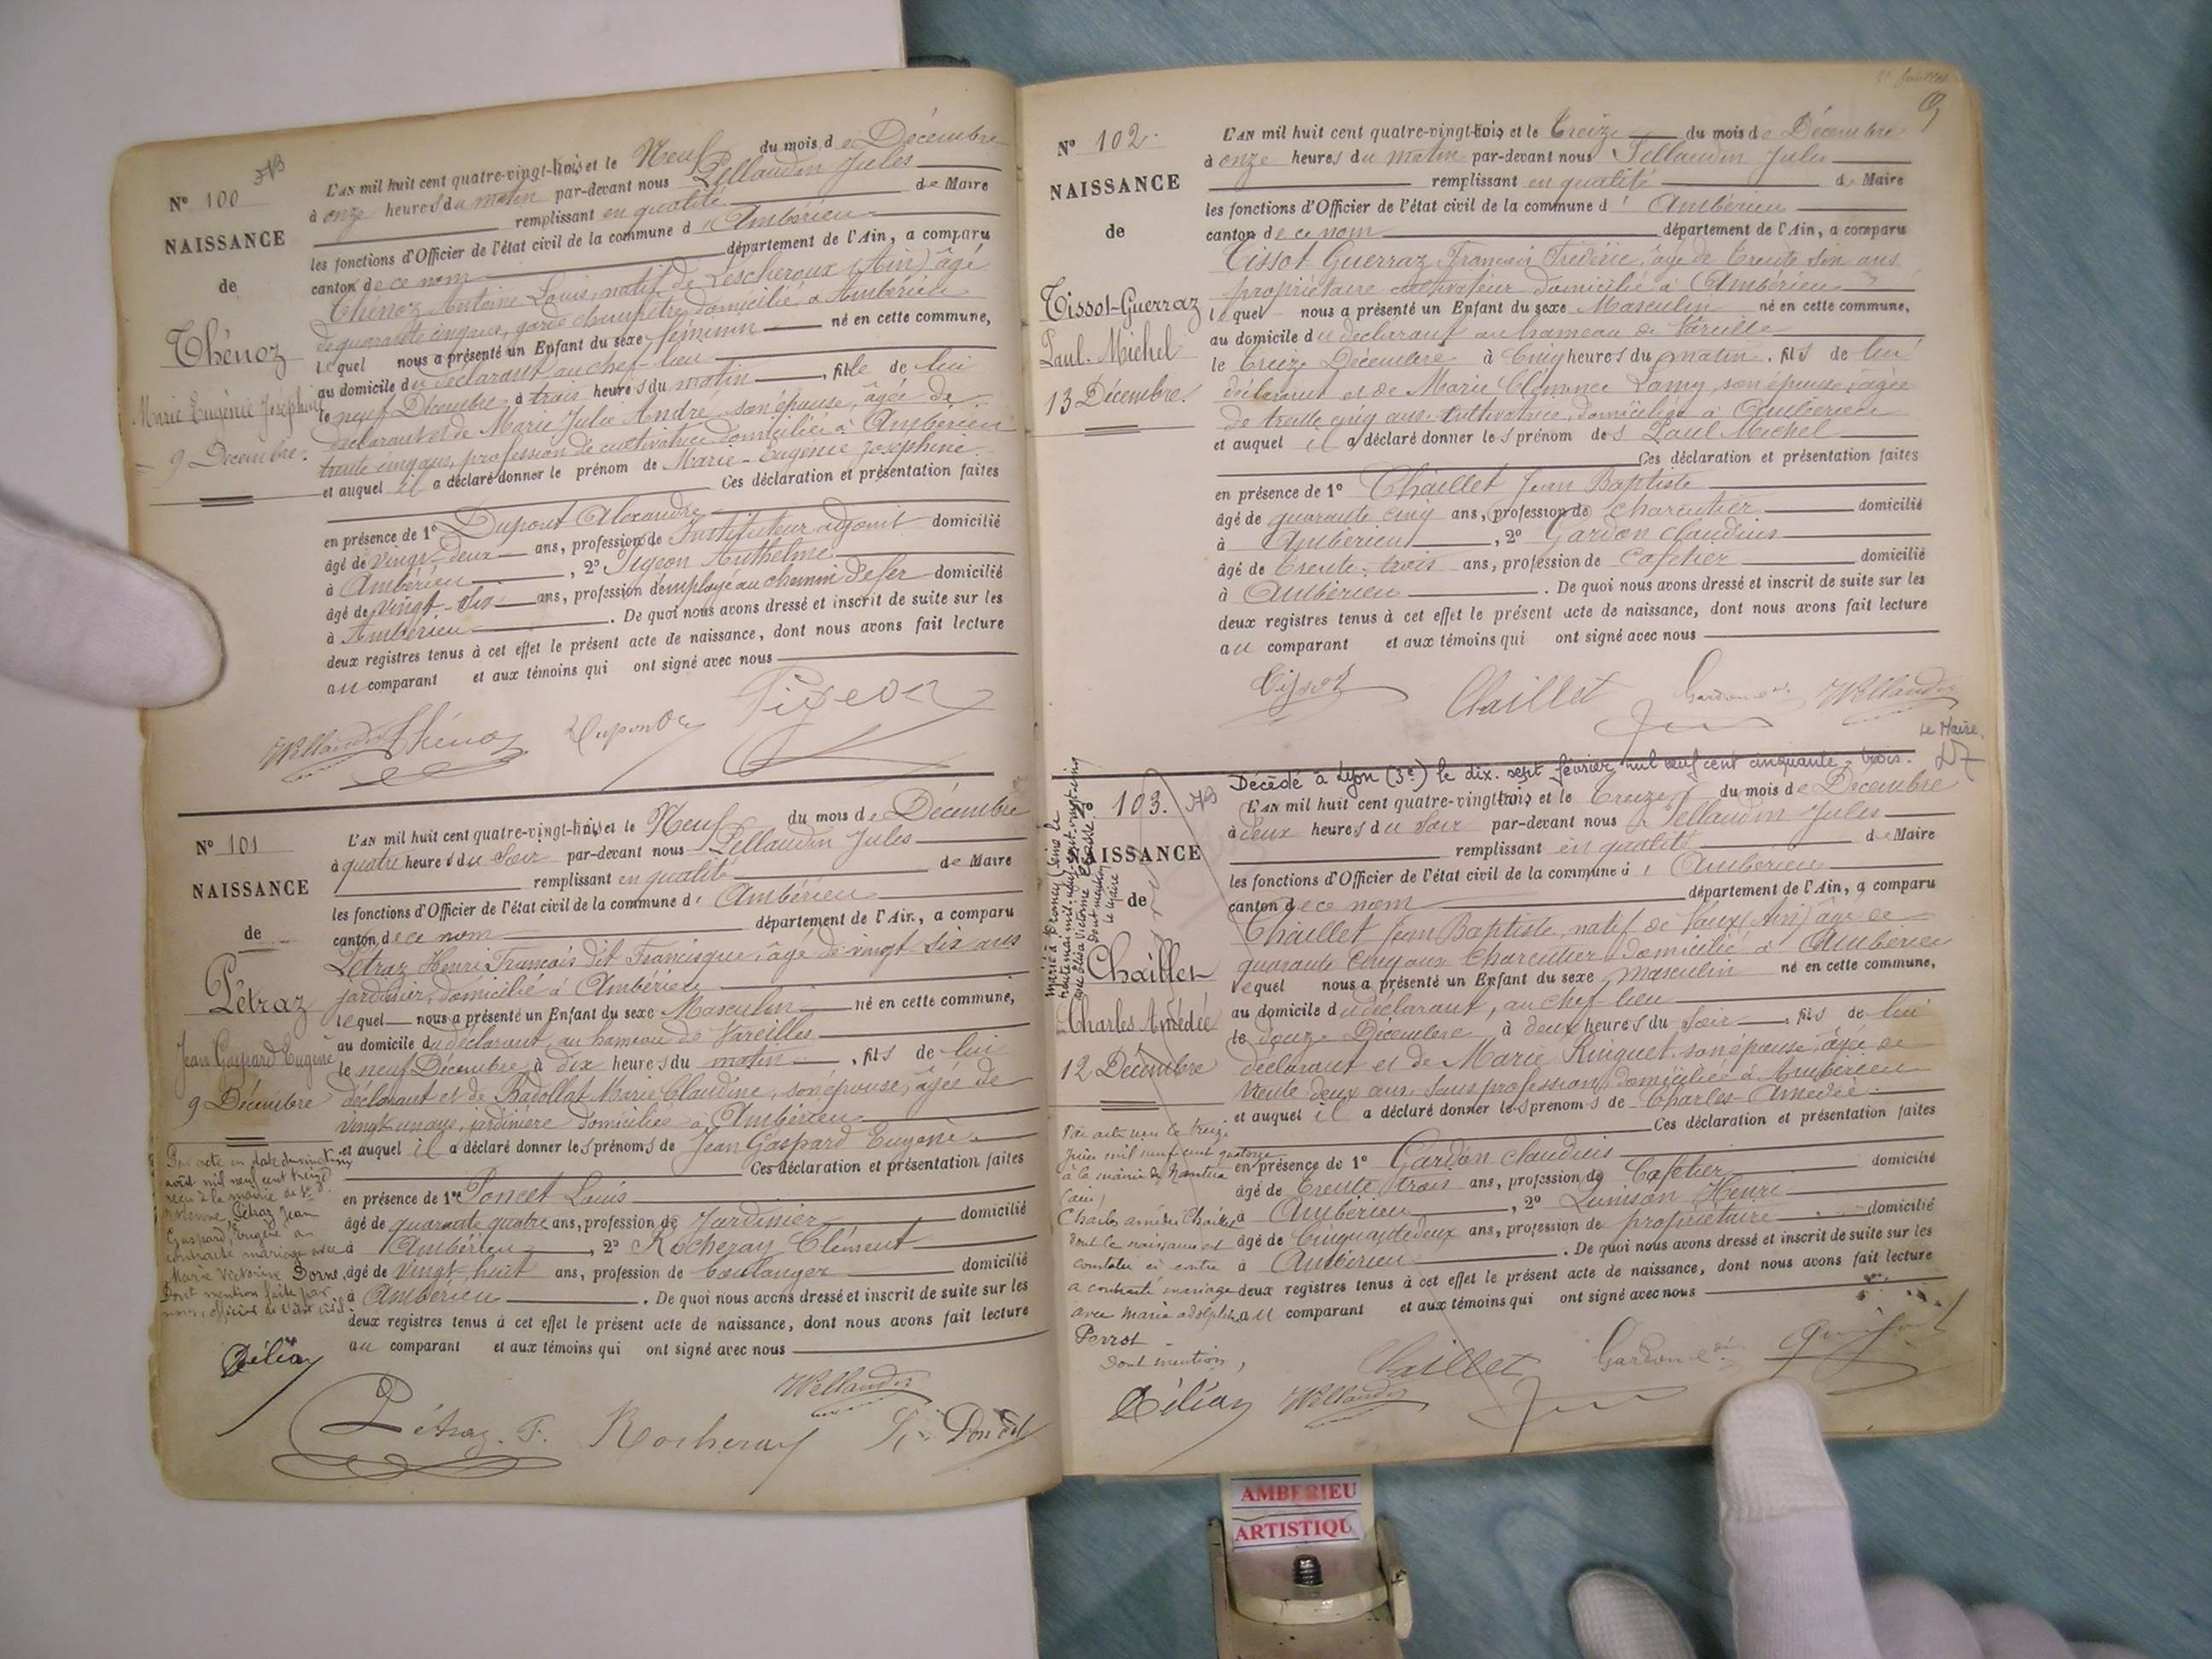 N° 100
NAISSANCE
de
Thénoz
Marie Eugénie Joséphine
9 Décembre.
L'AN mil huit cent quatre-vingt-trois et le Neuf du mois de Décembre
à onze heures du matin par-devant nous Pellaudin Jules
remplissant en qualité de Maire
les fonctions d'Officier de l'état civil de la commune d' Ambérieu
canton de ce nom département de l'Ain, a comparu
Thénoz Antoine Louis, natif de Lescheroux (Ain) âgé
de quarante cinq ans, garde champêtre, domicilié à Ambérieu
lequel nous a présenté un Enfant du sexe féminin né en cette commune,
au domicile du déclarant au chef-lieu
le neuf Décembre à trois heures du matin, fille de lui
déclarant et de Marie Julie André son épouse, âgée de
trente cinq ans, profession de cultivatrice domiciliée à Ambérieu
et auquel il a déclaré donner le prénom de Marie-Eugénie Joséphine.
Ces déclaration et présentation faites
en présence de 1° Dupont Alexandre
âgé de vingt-deux ans, profession de Instituteur adjoint domicilié
à Ambérieu, 2° Pigeon Anthelme
âgé de vingt-six ans, profession d'employé au chemin de fer domicilié
à Ambérieu. De quoi nous avons dressé et inscrit de suite sur les
deux registres tenus à cet effet le présent acte de naissance, dont nous avons fait lecture
au comparant et aux témoins qui ont signé avec nous
Pellaudin Thénoz Dupont Pigeon
N° 101
NAISSANCE
de
Pétraz
Jean Gaspard Eugène
9 Décembre
L'AN mil huit cent quatre-vingt-trois et le Neuf du mois de Décembre
à quatre heures du Soir par-devant nous Pellaudin Jules
remplissant en qualité de Maire
les fonctions d'Officier de l'état civil de la commune d' Ambérieu
canton de ce nom département de l'Ain, a comparu
Pétraz Henri François dit Francisque, âgé de vingt six ans
jardinier, domicilié à Ambérieu
lequel nous a présenté un Enfant du sexe Masculin né en cette commune,
au domicile du déclarant, au hameau de Vareilles
le neuf Décembre à dix heures du matin, fils de lui
déclarant et de Badollat Marie Claudine, son épouse, âgée de
vingt un ans, jardinière domiciliée à Ambérieu
et auquel il a déclaré donner les prénoms de Jean Gaspard Eugène.
Ces déclaration et présentation faites
en présence de 1° Poncet Louis
âgé de quarante quatre ans, profession de Jardinier domicilié
à Ambérieu, 2° Rocheray Clément
âgé de vingt-huit ans, profession de boulanger domicilié
à Ambérieu. De quoi nous avons dressé et inscrit de suite sur les
deux registres tenus à cet effet le présent acte de naissance, dont nous avons fait lecture
au comparant et aux témoins qui ont signé avec nous
Par acte en date du
août mil neuf cent treize
reçu à la mairie de St
Etienne, Pétraz Jean
Gaspard, Eugène a
contracté mariage avec
Marie Victorine Dorne,
Dont mention faite par
nous, officier de l'état civil.
Pellaudin
Pétraz F. Rocheray Poncet
N° 102
NAISSANCE
de
Tissot-Guerraz
Paul-Michel
13 Décembre.
L'AN mil huit cent quatre-vingt-trois et le treize du mois de Décembre
à onze heures du matin par-devant nous Pellaudin Jules
remplissant en qualité de Maire
les fonctions d'Officier de l'état civil de la commune d' Ambérieu
canton de ce nom département de l'Ain, a comparu
Tissot Guerraz François Frédéric, âgé de trente six ans
propriétaire cultivateur domicilié à Ambérieu
lequel nous a présenté un Enfant du sexe Masculin né en cette commune,
au domicile du déclarant au hameau de Vareille
le treize Décembre à cinq heures du matin, fils de lui
déclarant et de Marie Clémence Lamy, son épouse, âgée
de trente cinq ans cultivatrice, domiciliée à Ambérieu
et auquel il a déclaré donner les prénom des Paul Michel
Ces déclaration et présentation faites
en présence de 1° Chaillet Jean Baptiste
âgé de quarante cinq ans, profession de Charcutier domicilié
à Ambérieu, 2° Gardon Claudius
âgé de trente-trois ans, profession de Cafetier domicilié
à Ambérieu. De quoi nous avons dressé et inscrit de suite sur les
deux registres tenus à cet effet le présent acte de naissance, dont nous avons fait lecture
au comparant et aux témoins qui ont signé avec nous
Tissot Chaillet Gardon Pellaudin
Le Maire,
Décédé à Lyon (3e) le dix-sept février mil neuf cent cinquante-trois.
103.
NAISSANCE
de
Chaillet
Charles Amédée
12 Décembre
L'AN mil huit cent quatre-vingt-trois et le treize du mois de Décembre
à deux heures du Soir par-devant nous Pellaudin Jules
remplissant en qualité de Maire
les fonctions d'Officier de l'état civil de la commune d' Ambérieu
canton de ce nom département de l'Ain, a comparu
Chaillet Jean Baptiste, natif de Vaux (Ain) âgé de
quarante cinq ans Charcutier, domicilié à Ambérieu
lequel nous a présenté un Enfant du sexe masculin né en cette commune,
au domicile du déclarant, au chef-lieu
le douze Décembre à deux heures du Soir, fils de lui
déclarant et de Marie Ringuet son épouse, âgée de
trente deux ans, sans profession, domiciliée à Ambérieu
et auquel il a déclaré donner les prénoms de Charles-Amédée.
Ces déclaration et présentation faites
en présence de 1° Gardon Claudius
âgé de trente trois ans, profession de Cafetier domicilié
à Ambérieu, 2° Henri
âgé de cinquante deux ans, profession de propriétaire domicilié
à Ambérieu. De quoi nous avons dressé et inscrit de suite sur les
deux registres tenus à cet effet le présent acte de naissance, dont nous avons fait lecture
au comparant et aux témoins qui ont signé avec nous
Par acte le treize
juin mil neuf cent quatorze
à la mairie de Nantua
(ain)
Charles amédée Chaillet
dont la naissance est
constatée ci contre
a contracté mariage
avec Marie
Perrot
Dont mention,
Pellaudin Chaillet Gardon
AMBERIEU
ARTISTIQU